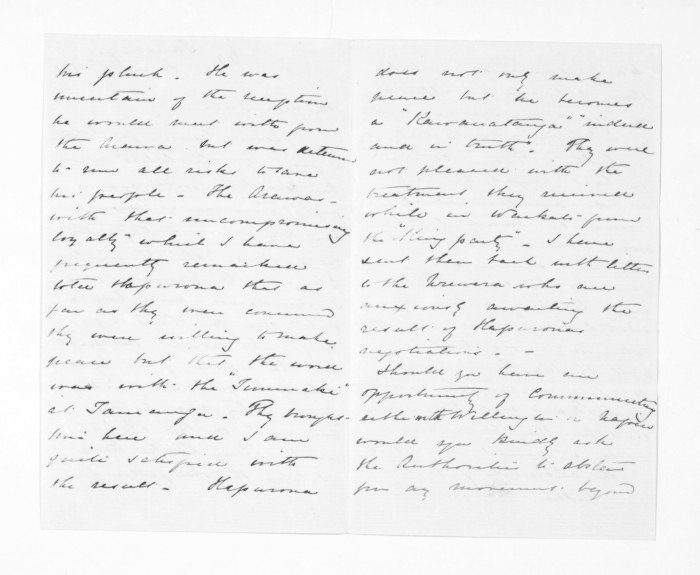 his pluck - He was
uncertain of the reception
he would meet with from
the Arawa but was determd
to run all risks to save
his people - The Arawas -
with that uncompromising
loyalty which I have
frequently remarked
told Hapurona that as
far as they were concerned
they were willing to make
peace but that the word
was with the "Timunaki"
at Tauranga - They brought
him here and I am
quite satisfied with
the result - Hapurona
does not only make
peace but he becomes
a "Kawanatanga" "indeed
and in truth". They were
not pleased with the
treatment they received
while in Waikato from
the "King party" - I have
sent them back with letters
to the Urewera who are
anxiously awaiting the
result of Hapuronas
negotiations - -
Should you have an
opportunity of Communicating
either with Wellington or Napier
would you kindly ask
the Authorities to abstain
from any movement beyond